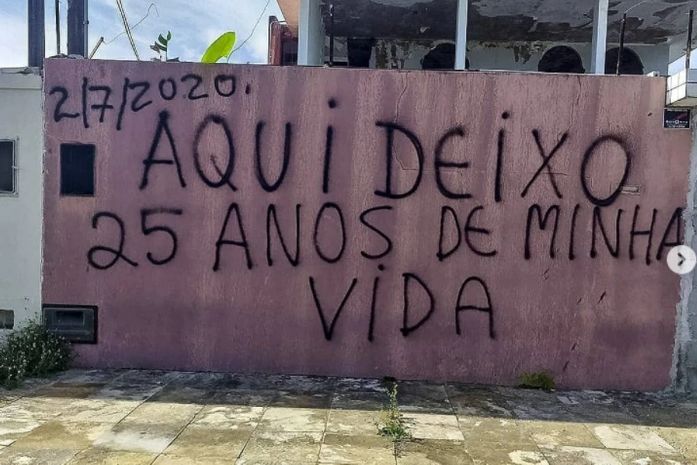 2/7/2020.
AQUI DEIXO
25 ANOS DE MINHA
VIDA